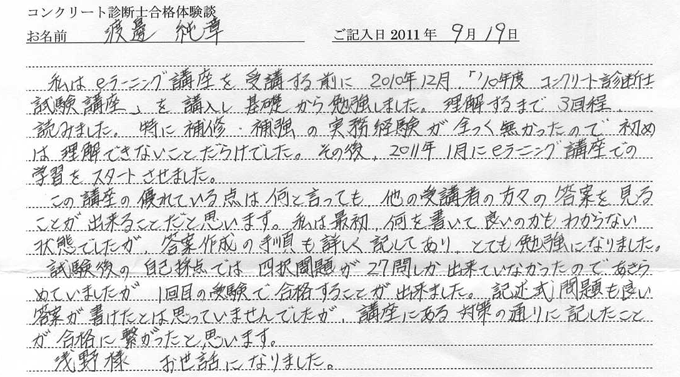 コンクリート診断士合格体験談
お名前 渡邉 純章 ご記入日 2011年 9月19日
私は eラーニング講座を受講する前に 2010年12月「'10年度 コンクリート診断士
試験講座」を購入し基礎から勉強しました。理解するまで 3回程、
読みました。特に補修・補強の実務経験が全っく無かったので初め
は理解できないことだらけでした。その後、2011年1月にeラーニング講座での
学習をスタートさせました。
この講座の優れている点は何と言っても、他の受講者の方々の答案を見る
ことが出来ることだと思います。私は最初、何を書いて良いのかもわからない
状態でしたが、答案作成の手順も詳しく記してあり、とても勉強になりました。
試験後の自己採点では四択問題が27問しか出来ていなかったのであきら
めていましたが 1回目の受験で合格することが出来ました。記述式問題も良い
答案が書けたとは思っていませんでしたが、講座にある対策の通りに記したこと
が合格に繋がったと思います。
浅野様 お世話になりました。